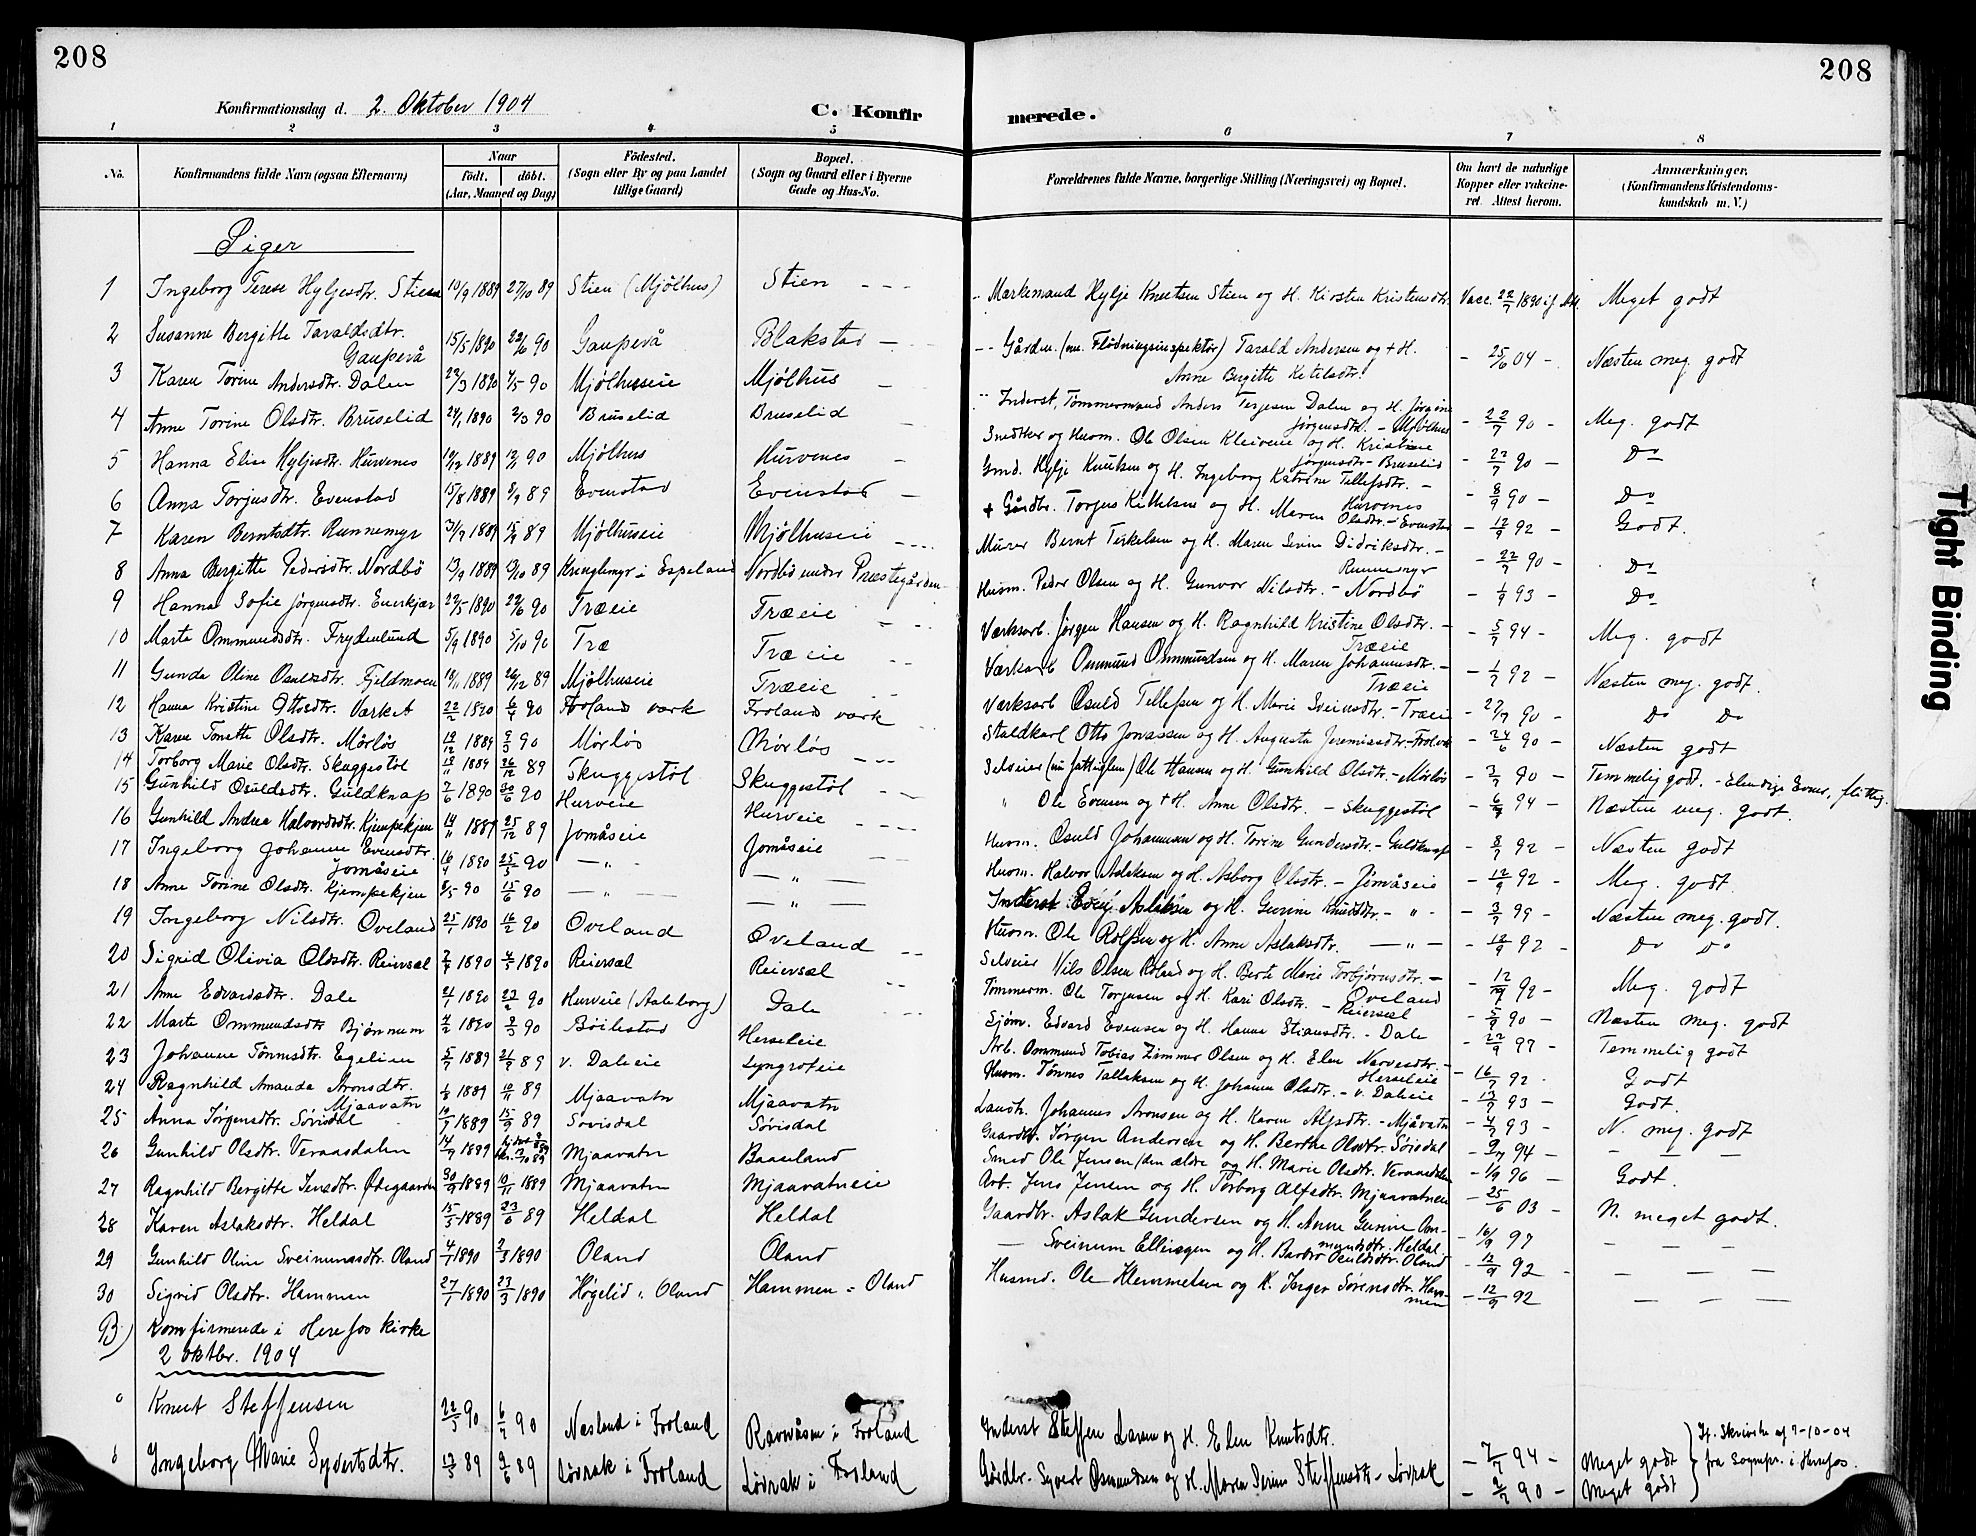 208
208
Konfirmationsdag d. 2. Oktober 1904
C. Konfir
merede.
1 2 3 4 5 6 7 8
No.
Konfirmandens fulde Navn (ogsaa Efternavn)
Naar
födt. döbt.
(Aar, Maaned og Dag)
Födested.
(Sogn eller By og paa Landet
tillige Gaard)
Bopæl.
(Sogn og Gaard eller i Byerne
Gade og Hus-No.
Forældrenes fulde Navne, borgerlige Stilling (Næringsvei) og Bopæl.
Om havt de naturlige
Kopper eller vakcine-
ret. Attest herom.
Anmærkninger.
(Konfirmandens Kristendoms-
kundskab m. V.)
Piger
1 Ingeborg Terese Hyljesdtr. Stien 10/9 1889 27/10 89 Stien (Mjölhus) Stien Markemand Hylje Knutsen Stien og H. Kirsten Kristensdtr. Vacc. 22/7 1890 if. Att. Meget godt
2 Susanne Bergitte Taraldsdtr. Gauperå 15/5 1890 22/6 90 Gauperå Blakstad Gårdm. (nu Flödningsinspektör) Tarald Andersen og + H. Anne Bergitte Ketilsdtr. - 25/6 04 - Næsten meg. godt
3 Karen Torine Andersdtr. Dalen 22/3 1890 4/5 90 Mjölhuseie Mjölhus Inderst, Tömmermand Anders Terjesen Dalen og H. Jörgine Jörgensdtr. - Mjölhus - 22/7 90 - Meg. godt
4 Anne Torine Olsdtr. Bruselid 24/1 1890 2/3 90 Bruselid Bruselid Snedker og Husm. Ole Olsen Kleiveie og H. Kristine Jörgensdtr - Bruselid - 22/7 90 - Do
5 Hanna Elise Hyljesdtr. Hurvenes 1889 90 Mjölhus Hurvenes Gmd. Hylje Knutsen og H. Ingeborg Katrine Tellefsdtr. - Hurvenes - 8/9 90 - Do
6 Anna Torjusdtr. Evenstad 15/8 1889 8/9 89 Evenstad Evenstad + Gårdbr. Torjus Kittelsen og H. Maren Olsdtr. - Evenstad - 12/9 92 - Godt.
7 Karen Berntsdtr. Runnemyr 31/7 1889 15/9 89 Mjölhuseie Mjölhuseie Murer Bernt Terkelsen og H. Maren Sevine Didriksdtr. - Runnemyr - 22/7 90 - Do
8 Anna Bergitte Pedersdtr. Nordbö 13/9 1889 13/10 89 Kringlemyr i Espeland Nordbö under Præstegården Husm. Peder Olsen og H. Gunvor Nilsdtr. - Nordbö - 1/9 93 - Do
9 Hanna Sofie Jörgensdtr. Enerkjær 22/5 1890 22/6 90 Træeie Træeie Værksarb. Jörgen Hansen og H. Ragnhild Kristine Olsdtr. - Træeie - 5/7 94 - Meg. godt
10 Marte Ommundsdtr. Frydenlund 5/9 1890 5/10 90 Træ Træeie Værksarb Ommund Ommundsen og H. Maren Johannesdtr. - Træeie - 1/7 92 - Næsten meg. godt.
11 Gunda Oline Osuldsdtr. Fjeldmoen 18/11 1889 26/12 89 Mjölhuseie Træeie Værksarb Osuld Tellefsen og H. Marie Sveinsdtr. - Træeie - 27/7 90 - Do Do
12 Hanna Kristine Ottosdtr. Værket 22/2 1890 6/4 90 Froland værk Froland værk Staldkarl Otto Jonassen og H. Augusta Jeremiasdtr. - Frolvæ - 24/6 90 - Næsten godt
13 Karen Tonette Olsdtr. Mörlös 19/12 1889 9/3 90 Mörlös Mörlös Selveier (nu fattiglem) Ole Hansen og H. Gunhild Olsdtr. - Mörlös - 3/7 90 - Temmelig godt. - Elendige Evner, flittig.
14 Torborg Marie Olsdtr. Skuggestöl 1889 26/12 89 Skuggestöl Skuggestöl " Ole Evensen og + H. Anne Olsdtr. - Skuggestöl - 94 - Næsten meg. godt.
15 Gunhild Osuldsdtr. Guldknap 7/6 1890 30/6 90 Hurveie Hurveie Husm. Osuld Johannesen og H. Torine Gundersdtr. - Guldknap - 8/7 92 - Næsten godt
16 Gunhild Andrea Halvorsdtr. Kjempekjen 14/11 1889 25/12 89 Jomåseie Jomåseie Husm. Halvor Aslaksen og H. Asborg Olsdtr. - Jomåseie - 12/9 92 - Meg. godt.
17 Ingeborg Johanne Evensdtr. Jomåseie 16/4 1890 25/5 90 — " - — " — Inderst Even Aslaksen og H. Gurine Knudsdtr. - " - - 3/7 99 - Næsten meg. godt.
18 Anne Torine Olsdtr. Kjempekjen 8/5 90 15/6 90 — " — — " — Husm. Ole Rolfsen og H. Anne Aslaksdtr. — " — - 12/9 92 - Do Do
19 Ingeborg Nilsdtr. Oveland 25/1 1890 16/2 90 Oveland Oveland Selveier Nils Olsen Roland og H. Berte Marie Torbjörnsdtr. - Oveland - 92 - Meg. godt
20 Sigrid Olivia Olsdtr. Reiersæl 1890 4/5 1890 Reiersæl Reiersæl Tömmerm. Ole Torjusen og H. Kari Olsdtr. - Reiersæl - 5/9 90 - Næsten meg. godt
21 Anne Edvardsdtr. Dale 21/1 1890 23/2 90 Hurveie (Aaleborg) Dale Sjöm. Edvard Evensen og H. Hanna Stiansdtr. - Dale - 22/9 97 - Temmelig godt
22 Marte Ommundsdtr Bjönnum 4/2 1890 9/3 90 Böilestad Herseleie Arb. Ommund Tobias Zimmer Olsen og H. Elen Narvesdtr. - Herseleie - 16/7 92 - Godt
23 Johanne Tönnesdtr. Egelien 5/7 1889 21/7 89 v. Daleie Lyngroteie Husm. Tönnes Tallaksen og H. Johanne Olsdtr. - v. Daleie - 13/9 93 - Godt.
24 Ragnhild Amanda Aronsdtr. Mjaavatn 1889 10/11 89 Mjaavatn Mjaavatn Landh. Johannes Aronsen og H. Karen Alfsdtr. - Mjåvatn - 4/7 93 - N. meg. godt
25 Anna Jörgensdtr. Sörisdal 1889 15/9 89 Sörisdal Sörisdal Gaardbr. Jörgen Andersen og H. Berthe Olsdtr. Sörisdal - 94 - — — —
26 Gunhild Olsdtr. Veraasdalen 14/7 1889 Mjaavatn Baaseland Smed Ole Jensen (den ældre og H. Marie Olsdtr. Veraasdalen - 1/9 96 - Godt.
27 Ragnhild Bergitte Jensdtr. Ödegaarden 30/9 1889 10/11 1889 Mjaavatn Mjaavatneie Arb. Jens Jensen og H. Torborg Alfsdtr. Mjaavatneie - 25/6 03 - N. meget godt.
28 Karen Aslaksdtr. Heldal 15/5 1889 23/6 89 Heldal Heldal Gaardbr. Aslak Gundersen og H. Anne Gurine Om- mundsdtr. Heldal - 16/9 97 — — —
29 Gunhild Oline Sveinumsdtr. Oland 4/1 1890 2/3 1890 Oland Oland — Sveinum Ellingsen og H. Barbro Osuldsdtr. Oland - 12/9 92 - — — —
30 Sigrid Olsdtr. Hammen 27/1 1890 23/3 1890 Högelid " Oland Hammen = Oland Husmd. Ole Klemmetsen og K. Inger Sörensdtr. Ham- men - 12/9 92 — — —
B) Konfirmerede i Herefos kirke
2 oktbr. 1904
Knut Steffensen 22/3 90 6/7 90 Næsland i Froland Ravnåsen i Froland Inderst Steffen Larsen og H. Elen Knutsdtr. - 7/7 94 - Meget godt
Ingeborg Marie Syvertsdtr. 13/5 89 9/6 89 Lövrak i Froland Lövrak i Froland Gårdbr. Syvert Osmundsen og H. Maren Serine Steffensdtr - Lövrak - 2/7 90 - Meget godt
If. Skrivelse af 7-10-04
fra Sognepr. i Herefos.
Tight Binding